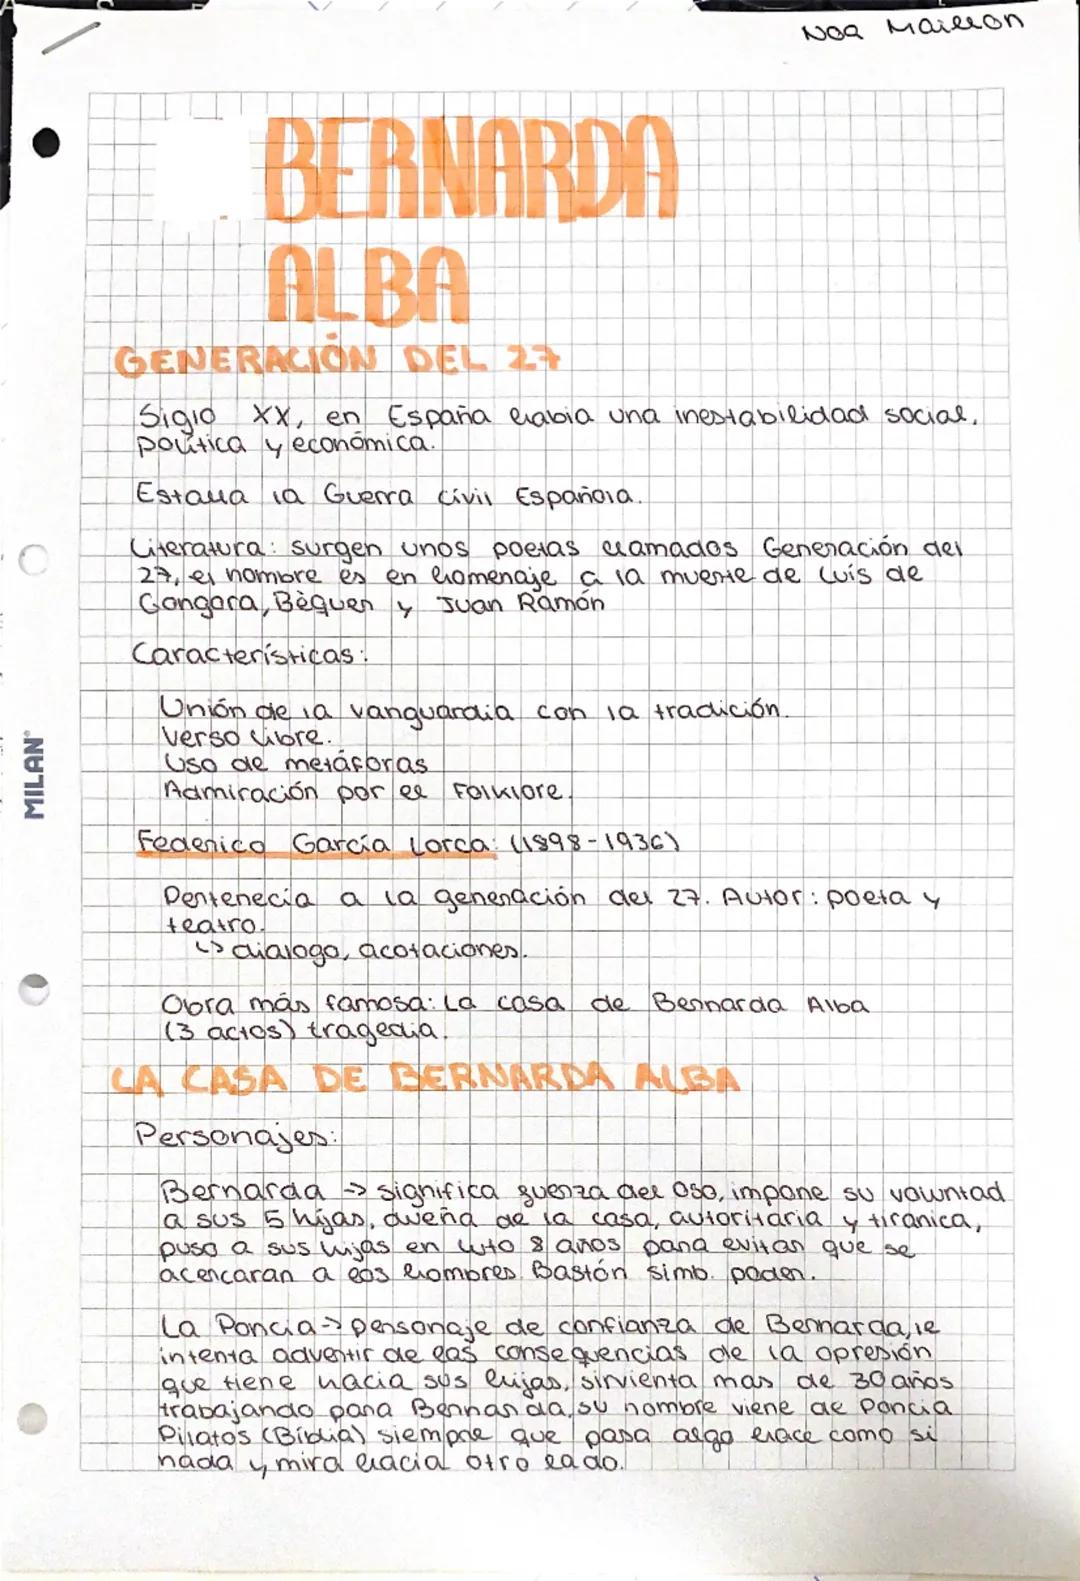 Noa
BERNARDA
ALBA
GENERACIÓN DEL 27
Siglo XX, en España había una inestabilidad social,
política y económica.
Estalla la Guerra Civil Española.
Literatura: surgen unos poetas llamados Generación del
27, el nombre es en homenaje a la muerte de Luís de
Gongora, Bèquer y Juan Ramón
Características:
Unión de la vanguardia con la tradición.
Verso libre.
Uso de metáforas
Admiración por el Folklore.
Federico García Lorca: (1898-1936)
Pertenecía a la generación del 27. Autor: poeta y
teatro.
↳ dialogo, acotaciones.
Obra más famosa: La casa de Bernarda Alba
(3 actos) tragedia.
LA CASA DE BERNARDA ALBA
Personajes:
Bernarda -> significa fuerza del Oso, impone su voluntad
a sus 5 hijas, dueña de la casa, autoritaria y tiranica,
puso a sus hijas en luto 8 años para evitar que se
acercaran a los hombres. Bastón simb. poder.
La Poncia -> personaje de confianza de Bernarda, le
intenta advertir de las consequencias de la opresión
que tiene hacia sus hijas, sirvienta mas de 30 años
trabajando para Bernarda, su nombre viene de Poncia
Pilatos (Bíblia) siempre que pasa algo hace como si
nada y mira hacia otro lado.
MILAN